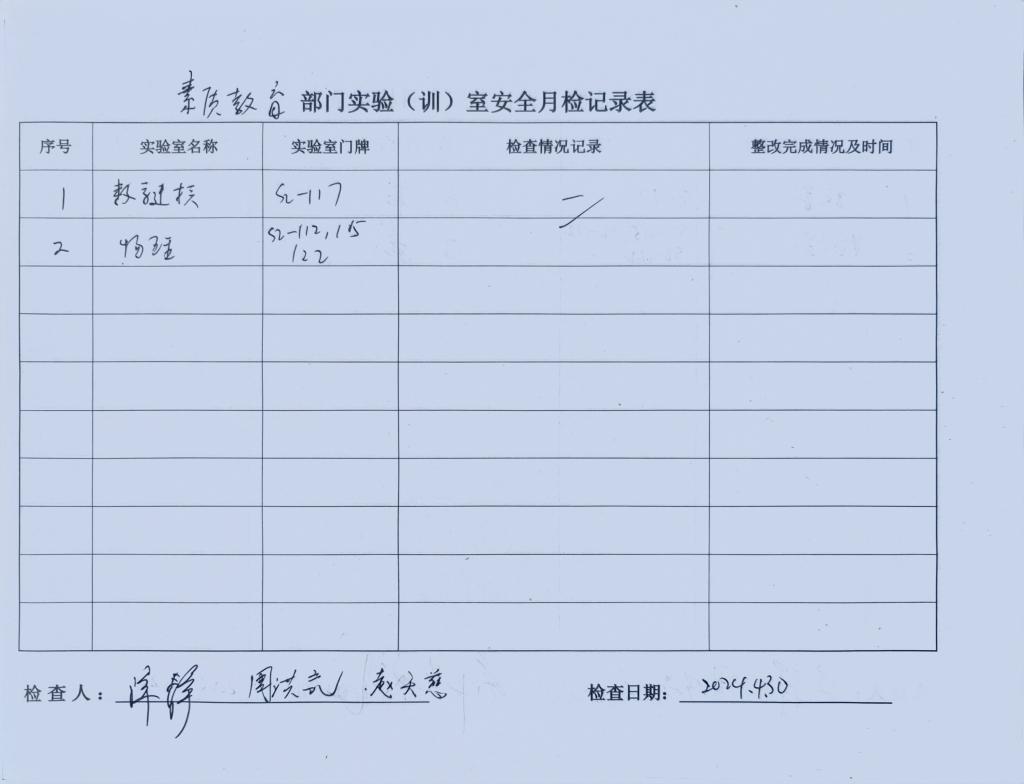 素质教育 部门实验（训）室安全月检记录表
序号 实验室名称 实验室门牌 检查情况记录 整改完成情况及时间
1 数 S2-117
2 物理 S2-112, 115
122
检查人： 周洪 赵天慈 检查日期： 2024.4.30